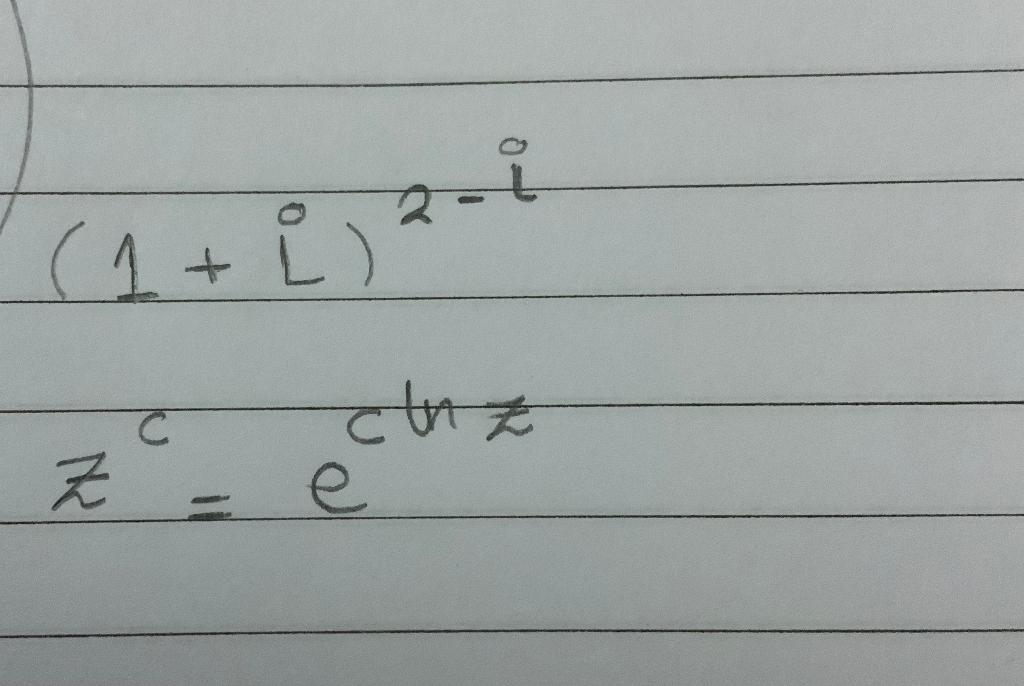 (1 + i)^{2 - i}
z^c = e^{c ln z}